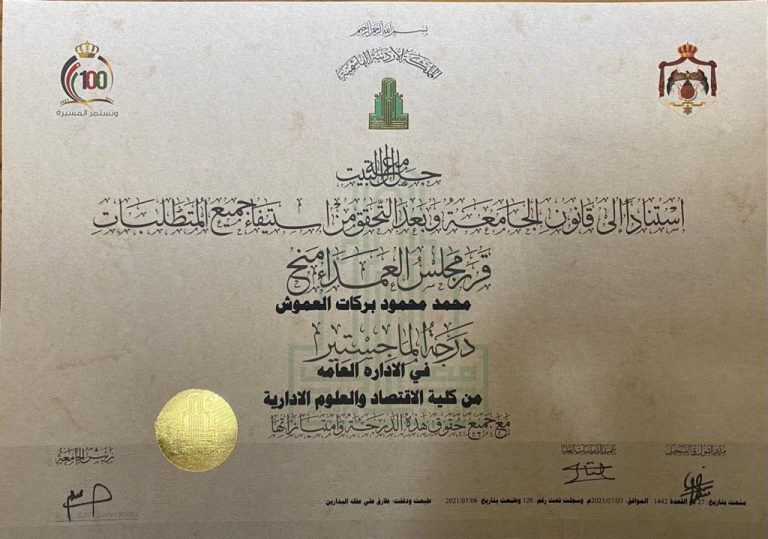 بسم الله الرحمن الرحيم
المملكة الأردنية الهاشمية
100
وتستمر المسيرة
جامعة آل البيت
استناداً إلى قانون الجامعة وبعد التحقق من استيفاء جميع المتطلبات
قرر مجلس العمداء منح
محمد محمود بركات العموش
درجة الماجستير
في الاداره العامه
من كلية الاقتصاد والعلوم الادارية
مع جميع حقوق هذه الدرجة وامتيازاتها
مدير القبول والتسجيل
عميد الدراسات العليا
رئيس الجامعة
منحت بتاريخ: 27 ذو القعدة 1442 الموافق 2021/07/07م وسجلت تحت رقم 128 وطبعت بتاريخ: 2021/07/06 طبعت ودققت: طارق علي عقله البدارين